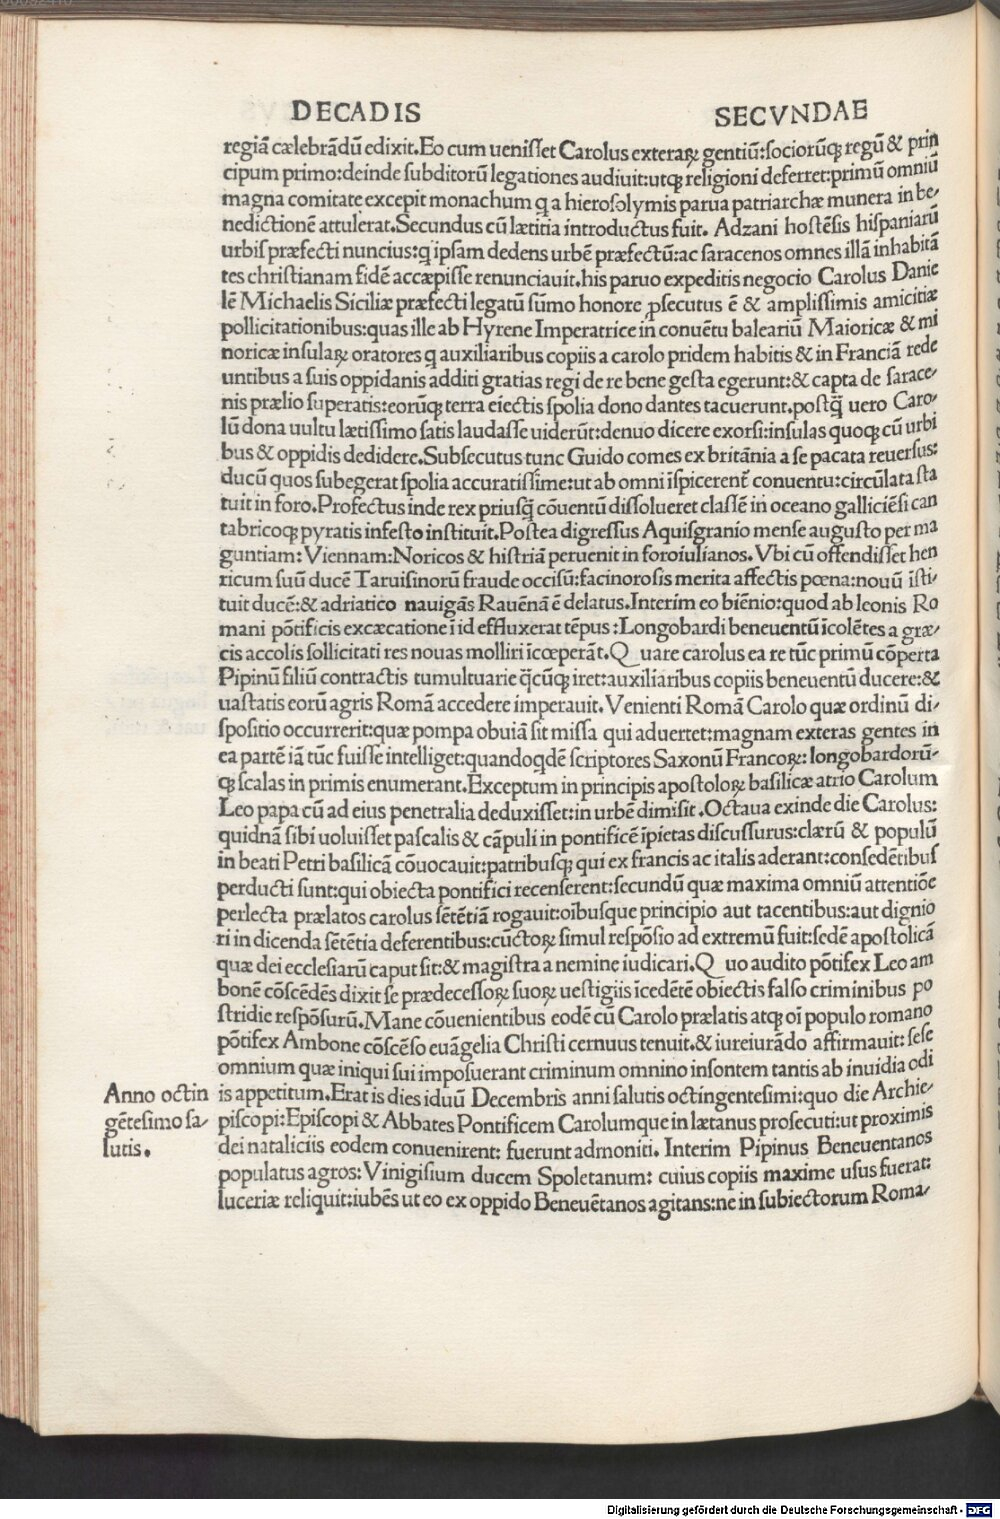 DECADIS SECVNDAE
regiā cælebrādū edixit.Eo cum ueniſſet Carolus exteraꝝ gentiū:ſociorūqꝫ regū & prin
cipum primo:deinde ſubditorū legationes audiuit:utqꝫ religioni deferret:primū omniū
magna comitate excepit monachum q̄ a hieroſolymis parua patriarchæ munera in be-
nedictionē attulerat.Secundus cū lætitia introductus fuit. Adzani hoſtēſis hiſpaniarū
urbiſ præfecti nuncius:q̄ ipſam dedens urbē præfectū:ac ſaracenos omnes illā inhabitā
tes chriſtianam fidē accæpiſſe renunciauit.his paruo expeditis negocio Carolus Danie
lē Michaelis Siciliæ præfecti legatū ſūmo honore ꝓſecutus ē & ampliſſimis amicitiæ
pollicitationibus:quas ille ab Hyrene Imperatrice in conuētu baleariū Maioricæ & mi
noricæ inſulaꝝ oratores q̄ auxiliaribus copiis a carolo pridem habitis & in Franciā rede
untibus a ſuis oppidanis additi gratias regi de re bene geſta egerunt:& capta de ſarace-
nis prælio ſuperatis:eorūqꝫ terra eiectis ſpolia dono dantes tacuerunt.poſtq̄ uero Caro-
lū dona uultu lætiſſimo ſatis laudaſſe uiderūt:denuo dicere exorſi:inſulas quoqꝫ cū urbi
bus & oppidis dedidere.Subſecutus tunc Guido comes ex britānia a ſe pacata reuerſus:
ducū quos ſubegerat ſpolia accuratiſſime:ut ab omni īſpicerent̄ conuentu:circūlata ſta
tuit in foro.Profectus inde rex priuſq̄ cōuentū diſſolueret claſſē in oceano galliciēſi can
tabricoqꝫ pyratis infeſto inſtituit.Poſtea digreſſus Aquiſgranio menſe auguſto per ma
guntiam:Viennam:Noricos & hiſtriā peruenit in foroiulianos.Vbi cū offendiſſet hen
ricum ſuū ducē Taruiſinorū fraude occiſū:facinoroſis merita affectis pœna:nouū īſti-
tuit ducē:& adriatico nauigās Rauēnā ē delatus.Interim eo biēnio:quod ab leonis Ro
mani pōtificis excæcatione ī id effluxerat tēpus:Longobardi beneuentū īcolētes a græ-
cis accolis ſollicitati res nouas molliri īcœperāt.Quare carolus ea re tūc primū cōperta
Pipinū filiū contractis tumultuarie q̄cūqꝫ iret:auxiliaribus copiis beneuentū ducere:&
uaſtatis eorū agris Romā accedere imperauit.Venienti Romā Carolo quæ ordinū di-
ſpoſitio occurrerit:quæ pompa obuiā ſit miſſa qui aduertet:magnam exteras gentes in
ea partē iā tūc fuiſſe intelliget:quandoqdē ſcriptores Saxonū Francoꝝ:longobardorū-
qꝫ ſcalas in primis enumerant.Exceptum in principis apoſtoloꝝ baſilicæ atrio Carolum
Leo papa cū ad eius penetralia deduxiſſet:in urbē dimiſit.Octaua exinde die Carolus:
quidnā ſibi uoluiſſet paſcalis & cāpuli in pontificē īpietas diſcuſſurus:clærū & populū
in beati Petri baſilicā cōuocauit:patribuſqꝫ qui ex francis ac italis aderant:conſedētibuſ
perducti ſunt:qui obiecta pontifici recenſerent:ſecundū quæ maxima omniū attentiōe
perlecta prælatos carolus ſētētiā rogauit:oībuſque principio aut tacentibus:aut dignio
ri in dicenda ſētētia deferentibus:cūctoꝝ ſimul reſpōſio ad extremū fuit:ſedē apoſtolicā
quæ dei eccleſiarū caput ſit:& magiſtra a nemine iudicari.Quo audito pōtifex Leo am
bonē cōſcēdēs dixit ſe prædeceſſoꝝ ſuoꝝ ueſtigiis īcedētē obiectis falſo criminibus po
ſtridie reſpōſurū.Mane cōuenientibus eodē cū Carolo prælatis atqꝫ oī populo romano
pōtifex Ambone cōſcēſo euāgelia Chriſti cernuus tenuit.& iureiurādo affirmauit:ſeſe
omnium quæ iniqui ſui impoſuerant criminum omnino inſontem tantis ab inuidia odi
is appetitum.Erat is dies iduū Decembris anni ſalutis octingenteſimi:quo die Archie-
piſcopi:Epiſcopi & Abbates Pontificem Carolumque in lætanus proſecuti:ut proximis
dei nataliciis eodem conuenirent: fuerunt admoniti. Interim Pipinus Beneuentanos
populatus agros:Vinigiſium ducem Spoletanum: cuius copiis maxime uſus fuerat:
luceriæ reliquit:iubēs ut eo ex oppido Beneuētanos agitans:ne in ſubiectorum Roma-
Anno octin
gēteſimo ſa-
lutis.
Digitalisierung gefördert durch die Deutsche Forschungsgemeinschaft - DFG